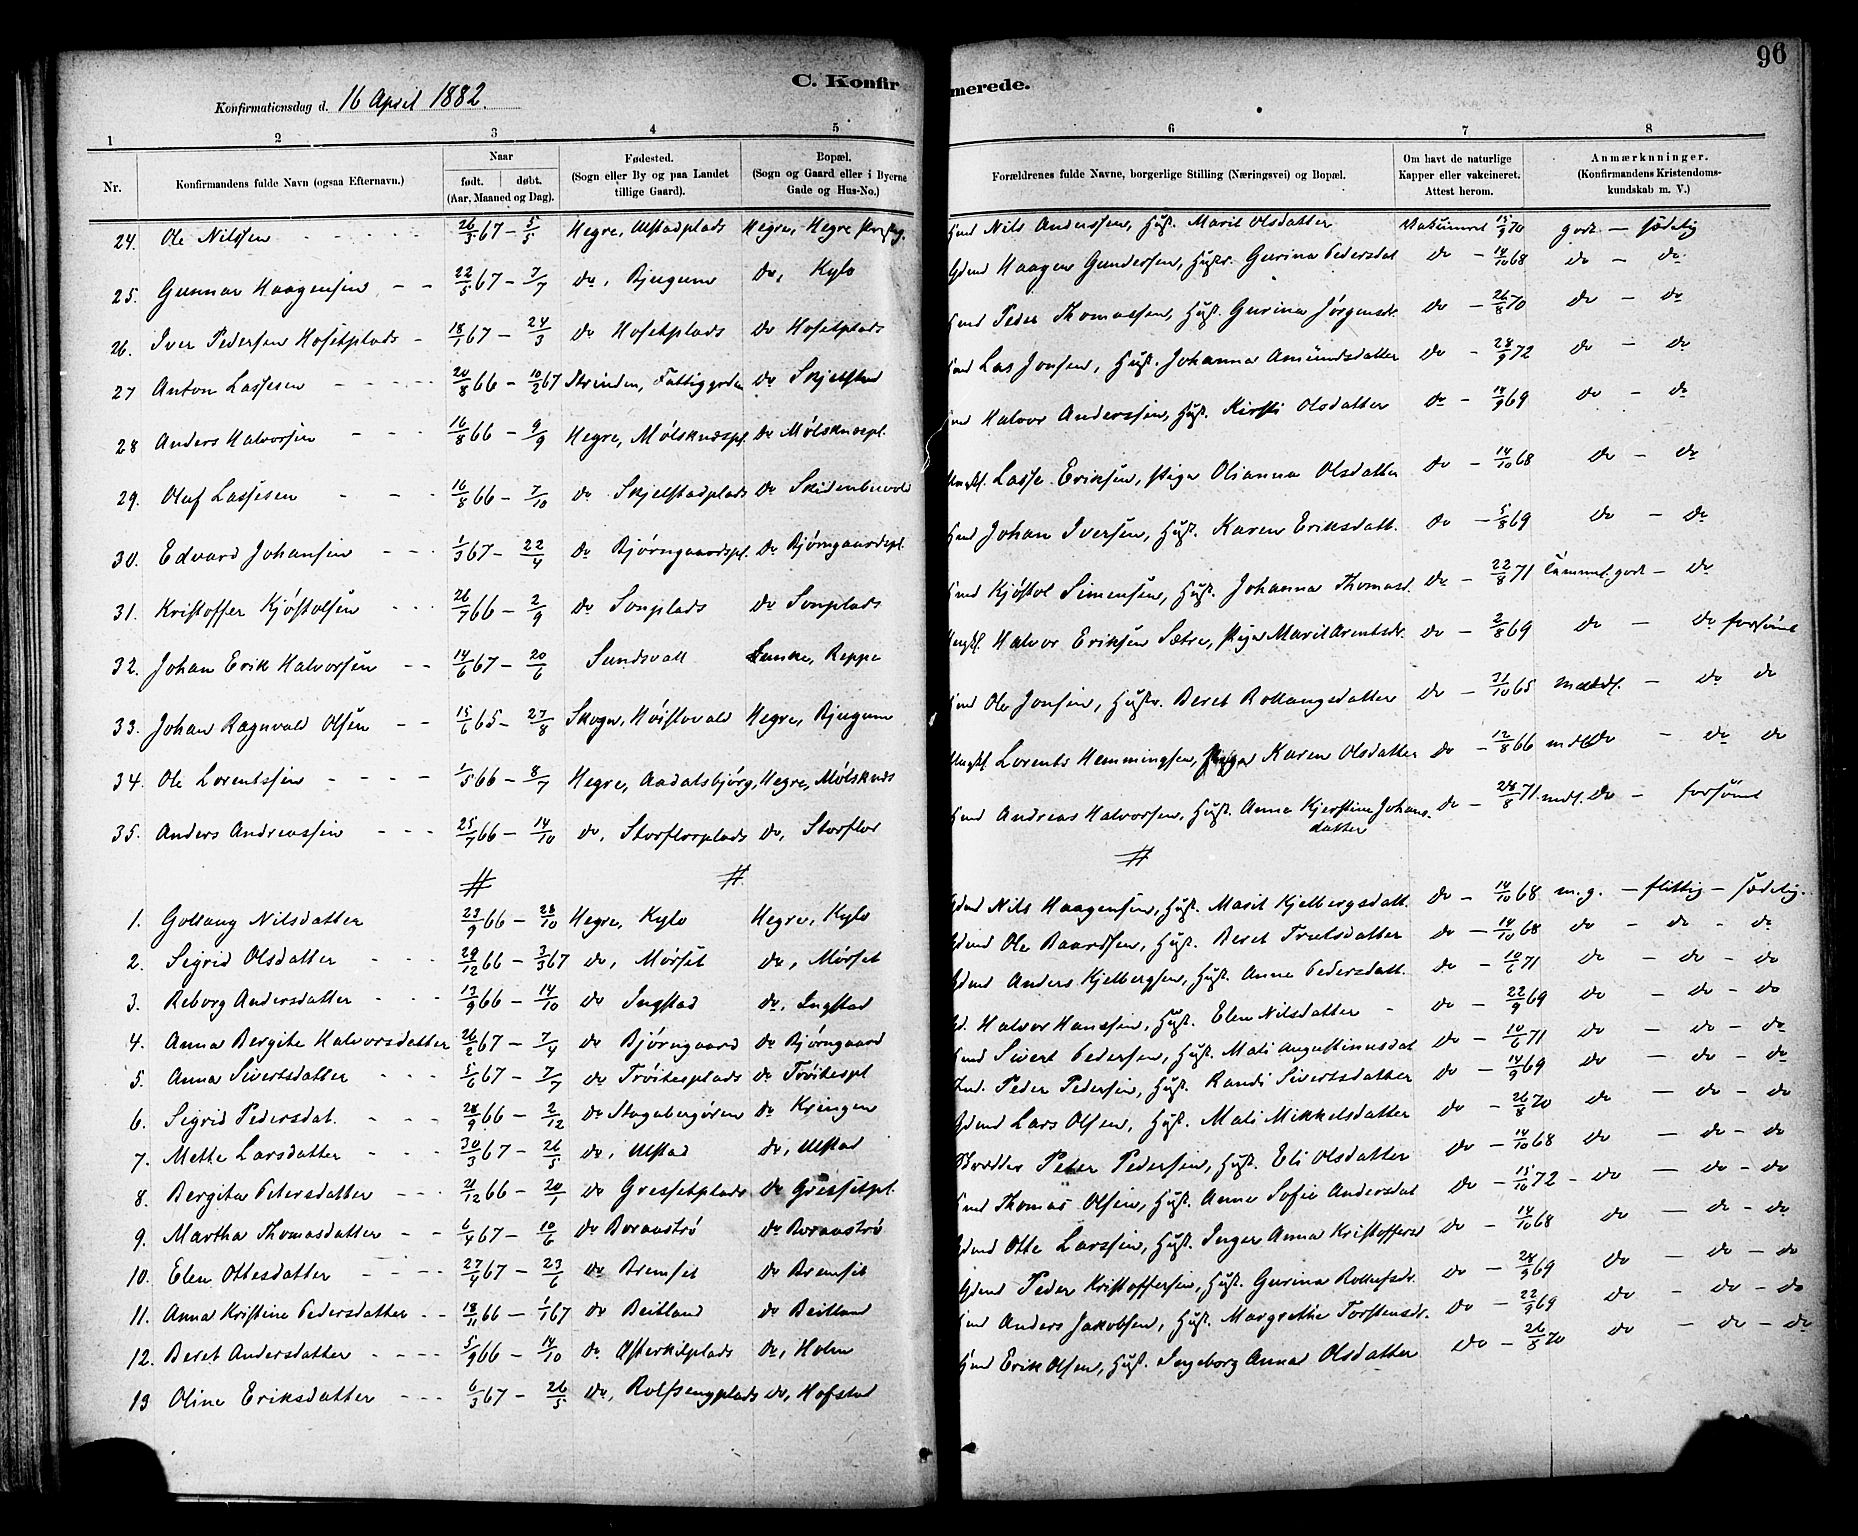 96
C. Konfirmerede.
Konfirmationsdag d. 16 April 1882.
1 2 3 4 5 6 7 8
Nr. Konfirmandens fulde Navn (ogsaa Efternavn.) Naar født. døbt. (Aar, Maaned og Dag). Fødested. (Sogn eller By og paa Landet tillige Gaard). Bopæl. (Sogn og Gaard eller i Byerne Gade og Hus-No.) Forældrenes fulde Navne, borgerlige Stilling (Næringsvei) og Bopæl. Om havt de naturlige Kapper eller vakcineret. Attest herom. Anmærkninger. (Konfirmandens Kristendomskundskab m. V.)
24. Ole Nilssen 26/3 67 – 5/5 Hegre, Ulstadplads Hegre, Hegre Nils Anderssen, Hust. Marit Olsdatter 15/9 70 godt – sædelig
25. Gunnar Haagensen 22/5 67 – 7/7 do, Bjugum do, Kylo Gdmd Haagen Gundersen, Hustr. Gurina Pedersdat do – 14/10 68 do – do
26. Iver Pedersen Hofsetplads 18/1 67 – 24/3 do Hofsetplads do Hofsetplads Peder Thomassen, Hust. Gurina Jørgensdr. do – 26/8 70 do – do
27 Anton Lassesen 20/8 66 – 10/2 67 Strinden, Fattiggården do Skjelstad Las Jonsen, Hust. Johanna Amundsdatter do – 28/9 72 do – do
28 Anders Halvorsen 16/8 66 – 9/9 Hegre, Mølsknæspl. do Mølsknæspl. Halvor Anderssen, Hust. Kirsti Olsdatter do – 14/9 69 do – do
29. Oluf Lassesen 16/8 66 – 7/10 do Skjelstadplads do Lasse Eriksen, Pige Olianna Olsdatter do – 14/10 68 do – do
30. Edvard Johansen 1/3 67 – 22/4 do Bjørngaardspl. do Bjørngaardspl. Johan Iversen, Hust. Karen Eriksdatt. do – 5/8 69 do – do
31. Kristoffer Kjøstolsen 26/7 66 – 2/9 do Sonplads do Sonplads Kjøstol Simensen, Hust. Johanna Thomasd. do – 22/8 71 Temmel. godt – do
32. Johan Erik Halvorsen 14/6 67 – 20/6 Sundsvall Lanke, Reppe Halvor Eriksen Sætre, Pige Marit Arentsdr. do – 2/8 69 do – do forsømt
33. Johan Ragnvald Olsen 15/6 65 – 27/8 Skogn, Høistovald Hegre, Bjugum Ole Jonsen, Hustr. Beret Rollaugsdatter do – 31/10 65 – do do
34. Ole Lorentssen 1/5 66 – 8/7 Hegre, Aadalsbjørg, Hegre, Mølsknæs Lorents Hemmingsen, Pige Karen Olsdatter do – 12/8 66 do – do do
35. Anders Andreassen 25/7 66 – 14/10 do, Storflorplads do, Storflor Andreas Halvorsen, Hust. Anna Kjerstine Johansdatter do – 28/8 71 do – forsømt
# # #
1. Gollaug Nilsdatter 23/9 66 – 28/10 Hegre, Kylo Hegre, Kylo Gdmd Nils Haagensen, Hust. Marit Kjelbergsdatt. do – 14/10 68 m.g. – flittig – sædelig.
2. Sigrid Olsdatter 29/12 66 – 3/3 67 do, Mørset do, Mørset Gdmd Ole Baardsen, Hust. Beret Trulsdatter do – 14/10 68 do – do – do
3. Reborg Andersdatter 13/9 66 – 14/10 do Ingstad do, Ingstad Gdmd Anders Kjelbergsen, Hust. Anne Pedersdatt. do – 10/6 71 do – do – do
4. Anna Bergite Halvorsdatter 26/2 67 – 7/4 do Bjørngaard do Bjørngaard Gd. Halvor Hanssen, Hust. Elen Nilsdatter – do – 22/9 69 do – do – do
5. Anna Sivertsdatter 5/6 67 – 7/7 do Trøitesplads do Trøitespl Sivert Pedersen, Hust. Mali Augustinusdat do – 10/6 71 do – do – do
6. Sigrid Pedersdat. 28/9 66 – 2/12 do Stagabergøren do Kringen Ind. Peder Pedersen, Hust. Randi Sivertsdatter do – 14/9 69 do – do – do
7. Mette Larsdatter 30/3 67 – 26/5 do, Ulstad do, Ulstad Gdmd Lars Olsen, Hust. Mali Mikkelsdatter do – 26/8 70 do – do – do
8. Bergita Petersdatter 21/12 66 – 20/1 do Gressetplads do Gressetpl. Peter Pedersen, Hust. Eli Olsdatter do – 14/10 68 do – do – do
9. Martha Thomasdatter 6/4 67 – 10/6 do Boraastrø do Boraastrø Thomas Olsen, Hust. Anne Sofie Andersdat do – 15/10 72 – do – do – do
10. Elen Ottesdatter 27/4 67 – 23/6 do Bremset do Bremset Gdmd Otte Larssen, Hust. Inger Anna Kristoffersd do – 14/10 68 do – do – do
11. Anna Kristine Pedersdatter 18/11 66 – 1/1 67 do Beitland do Beitland Gdmd Peder Kristoffersen, Hust. Gurina Rollefsdr. do – 28/9 69 do – do – do
12. Beret Andersdatter 5/9 66 – 14/10 do Østerkilplads do, Holm Anders Jakobsen, Hust. Margrethe Torstensdr. do – 22/9 69 do – do – do
13 Oline Eriksdatter 6/3 67 – 26/5 do, Rolfsengplads do, Hofstad Erik Olsen, Hust. Ingeborg Anna Olsdatter do – 26/8 70 do – do – do